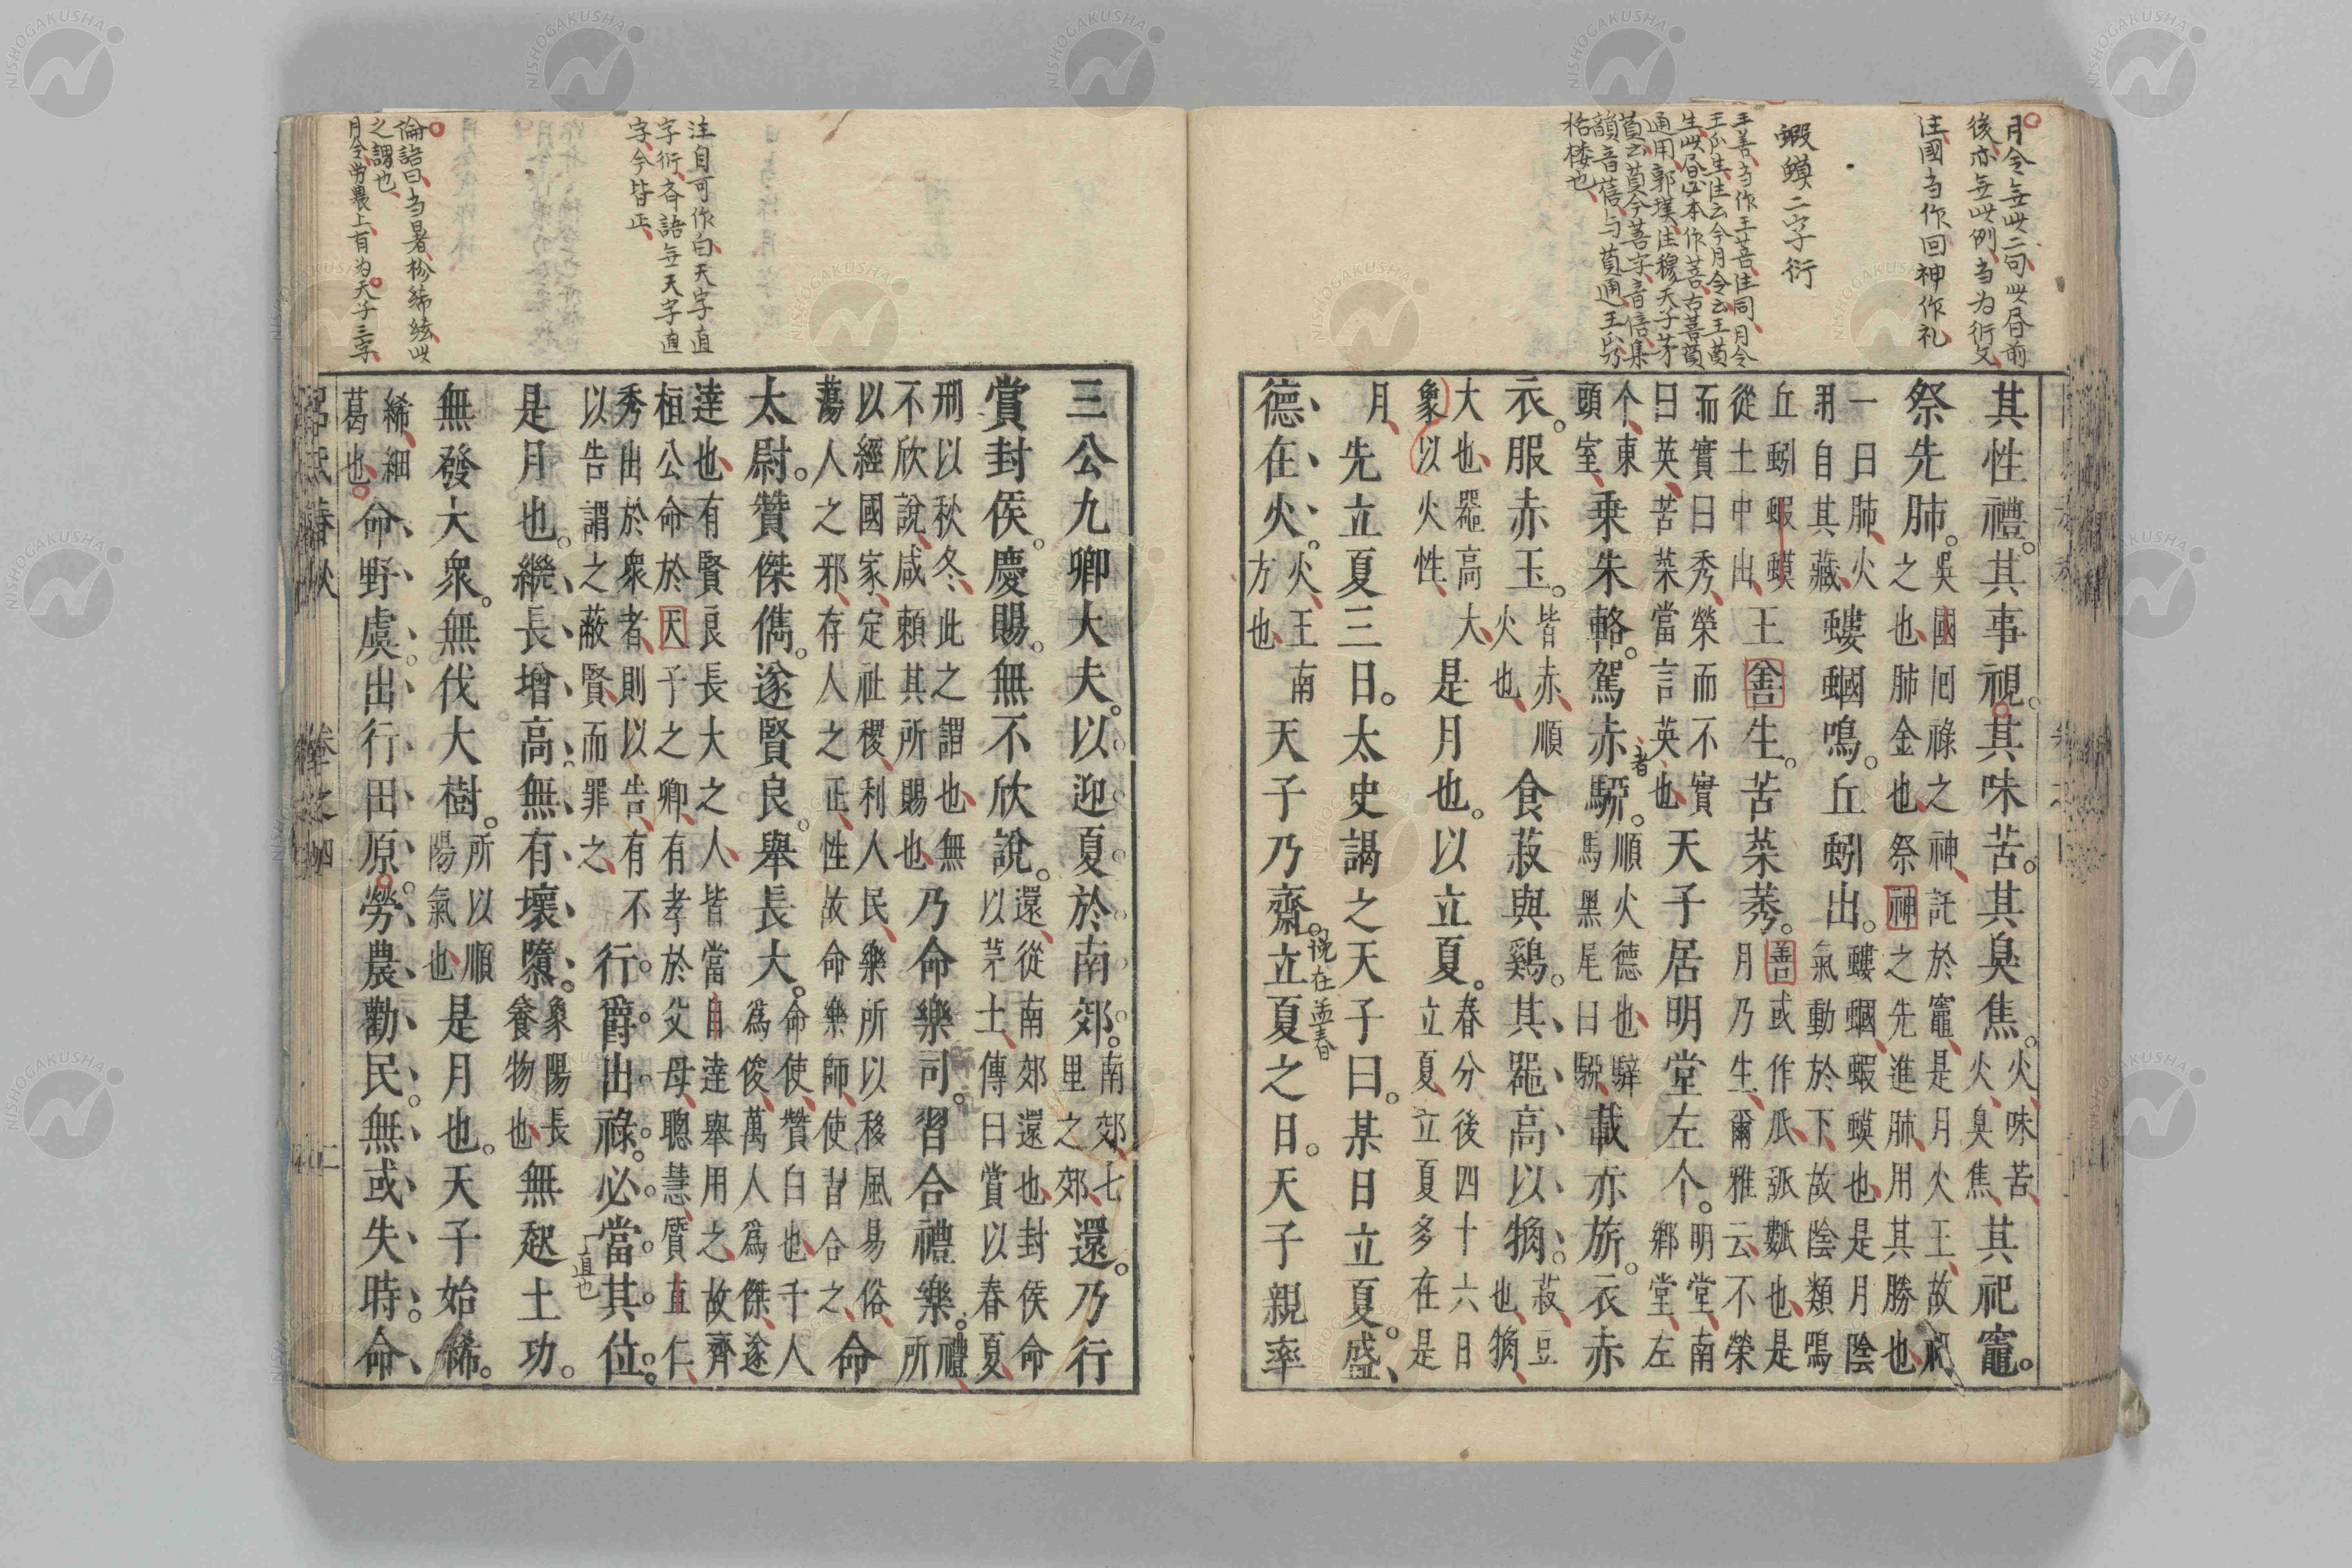 月令無此二句此春前
後亦無此例当為衍文
注國当作回神作礼
蝦蟆二字衍
王善当作王菩注同月令
王瓜生注云今月令云王萯
生此昏宋本作菩古菩萯
通用郭璞注穆天子茅
萯云萯今菩字音倍集
韻音蓓与萯通王瓜乃
栝楼也
其性禮。其事視。其味苦。其臭焦。火味苦、火臭焦、其祀竈。
祭先肺。吳國回祿之神、託於竈、是月火王、故祀之也、肺金也、祭神之先進肺、用其勝也、
一曰肺火、用自其藏、螻蟈鳴。丘蚓出。螻蟈、蝦蟆也、是月陰氣動於下、故陰類鳴
丘蚓蝦蟆從土中出、王善生。苦菜莠。善或作瓜、㼌瓞也、是月乃生、爾雅云、不榮
而實曰秀、榮而不實曰英、苦菜當言英也、天子居明堂左个。明堂、南鄉堂、左
个、東頭室、乘朱輅。駕赤驑。順火德也、騂馬黑尾曰驑、載赤旂。衣赤
衣。服赤玉。皆赤、順火也、食菽與雞。其器高以觕。菽豆也、觕、
大也、器高大、象以火性、是月也。以立夏。春分後四十六日立夏、立夏多在是
月、先立夏三日。太史謁之天子曰。某日立夏。盛
德在火。火、王南方也、天子乃齋。立夏之日。天子親率
者
説在孟春
三公九卿大夫。以迎夏於南郊。南郊、七里之郊、還。乃行
賞封侯。慶賜。無不欣說。還、從南郊還也、封侯命以茅土、傳曰賞以春夏、
刑以秋冬、此之謂也、無不欣說、咸賴其所賜也、乃命樂司。習合禮樂。禮所
以經國家、定社稷、利人民、樂所以移風易俗、蕩人之邪、存人之正性、故命樂師、使習合之、命
太尉。贊傑儁。遂賢良。舉長大。命使、贊白也、千人為俊、萬人為傑、遂
達也、有賢良長大之人、皆當自達舉用之、故齊桓公命於天子之卿、有孝於父母、聰慧質直仁
秀出於衆者、則以告、有不以告謂之蔽賢、而罪之、行。爵。出。祿。必。當。其。位。
是月也。繼長增高。無有壞隳。象陽長養物也、無起土功。
無發大衆。無伐大樹。所以順陽氣也、是月也。天子始絺。
絺、細葛也、命野虞。出行田原。勞農勸民。無或失時。命
「直也
注自可作白天字直
字衍斉語無天字直
字今皆正
論語曰当暑袗絺綌此
之謂也
月令労農上有为天子三字
呂氏春秋
卷之四
二